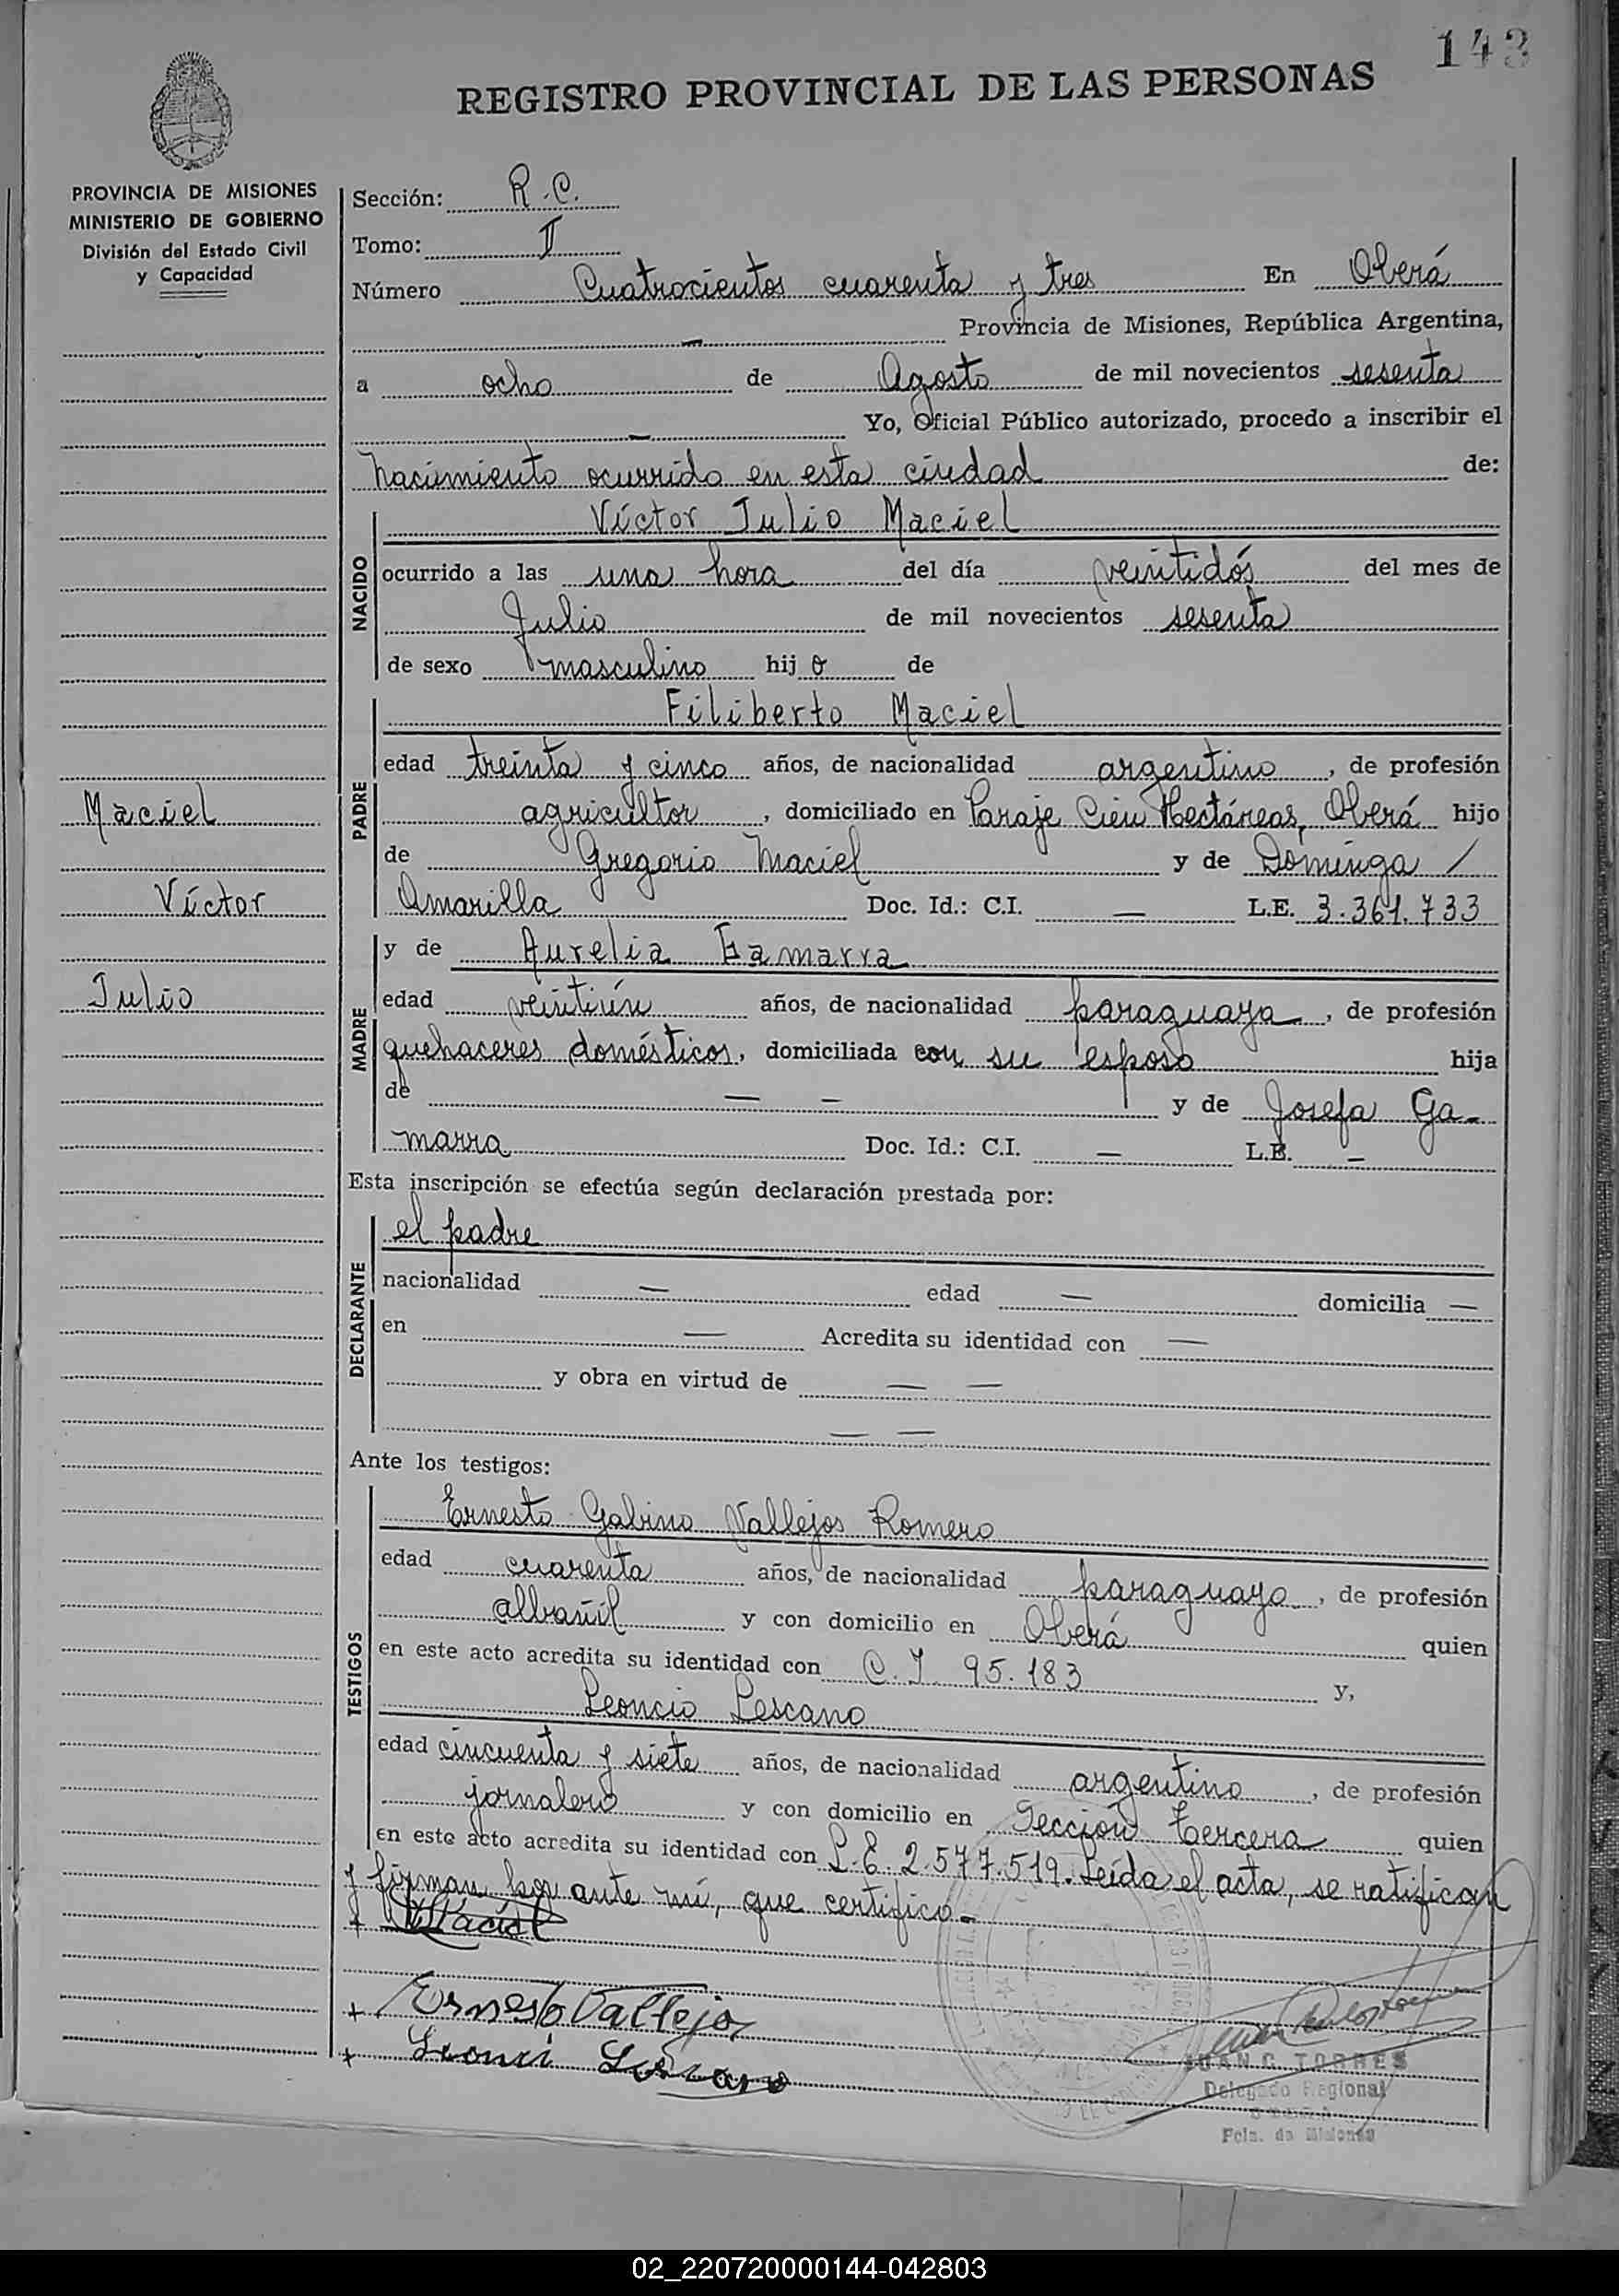 143
REGISTRO PROVINCIAL DE LAS PERSONAS
PROVINCIA DE MISIONES
MINISTERIO DE GOBIERNO
División del Estado Civil
y Capacidad
Maciel
Víctor
Julio
Sección: R.C.
Tomo: II
Número Cuatrocientos cuarenta y tres En Oberá
— Provincia de Misiones, República Argentina,
a ocho de Agosto de mil novecientos sesenta
— Yo, Oficial Público autorizado, procedo a inscribir el
nacimiento ocurrido en esta ciudad de:
NACIDO
Víctor Julio Maciel
ocurrido a las una hora del día veintidós del mes de
Julio de mil novecientos sesenta
de sexo masculino hijo de
PADRE
Filiberto Maciel
edad treinta y cinco años, de nacionalidad argentino, de profesión
agricultor, domiciliado en Paraje Cien Hectáreas, Oberá hijo
de Gregorio Maciel y de Dominga /
Amarilla Doc. Id.: C.I. — L.E. 3.361.733
MADRE
y de Aurelia Gamarra
edad veintiún años, de nacionalidad paraguaya, de profesión
quehaceres domésticos, domiciliada con su esposo hija
de — — y de Josefa Ga-
marra Doc. Id.: C.I. — L.E. —
Esta inscripción se efectúa según declaración prestada por:
DECLARANTE
el padre
nacionalidad — edad — domicilia —
en — Acredita su identidad con —
y obra en virtud de — —
— —
Ante los testigos:
TESTIGOS
Ernesto Gabino Vallejos Romero
edad cuarenta años, de nacionalidad paraguayo, de profesión
albañil y con domicilio en Oberá quien
en este acto acredita su identidad con C.I. 95.183 y,
Leoncio Lescano
edad cincuenta y siete años, de nacionalidad argentino, de profesión
jornalero y con domicilio en Sección Tercera quien
en este acto acredita su identidad con L.E. 2.577.519. Leída el acta, se ratifican
y firman por ante mí, que certifico.-
+ Maciel
+ Ernesto Vallejo
+
JUAN C. TORRES
Delegado Regional
OBERA
Pcia. de Misiones
02_220720000144-042803